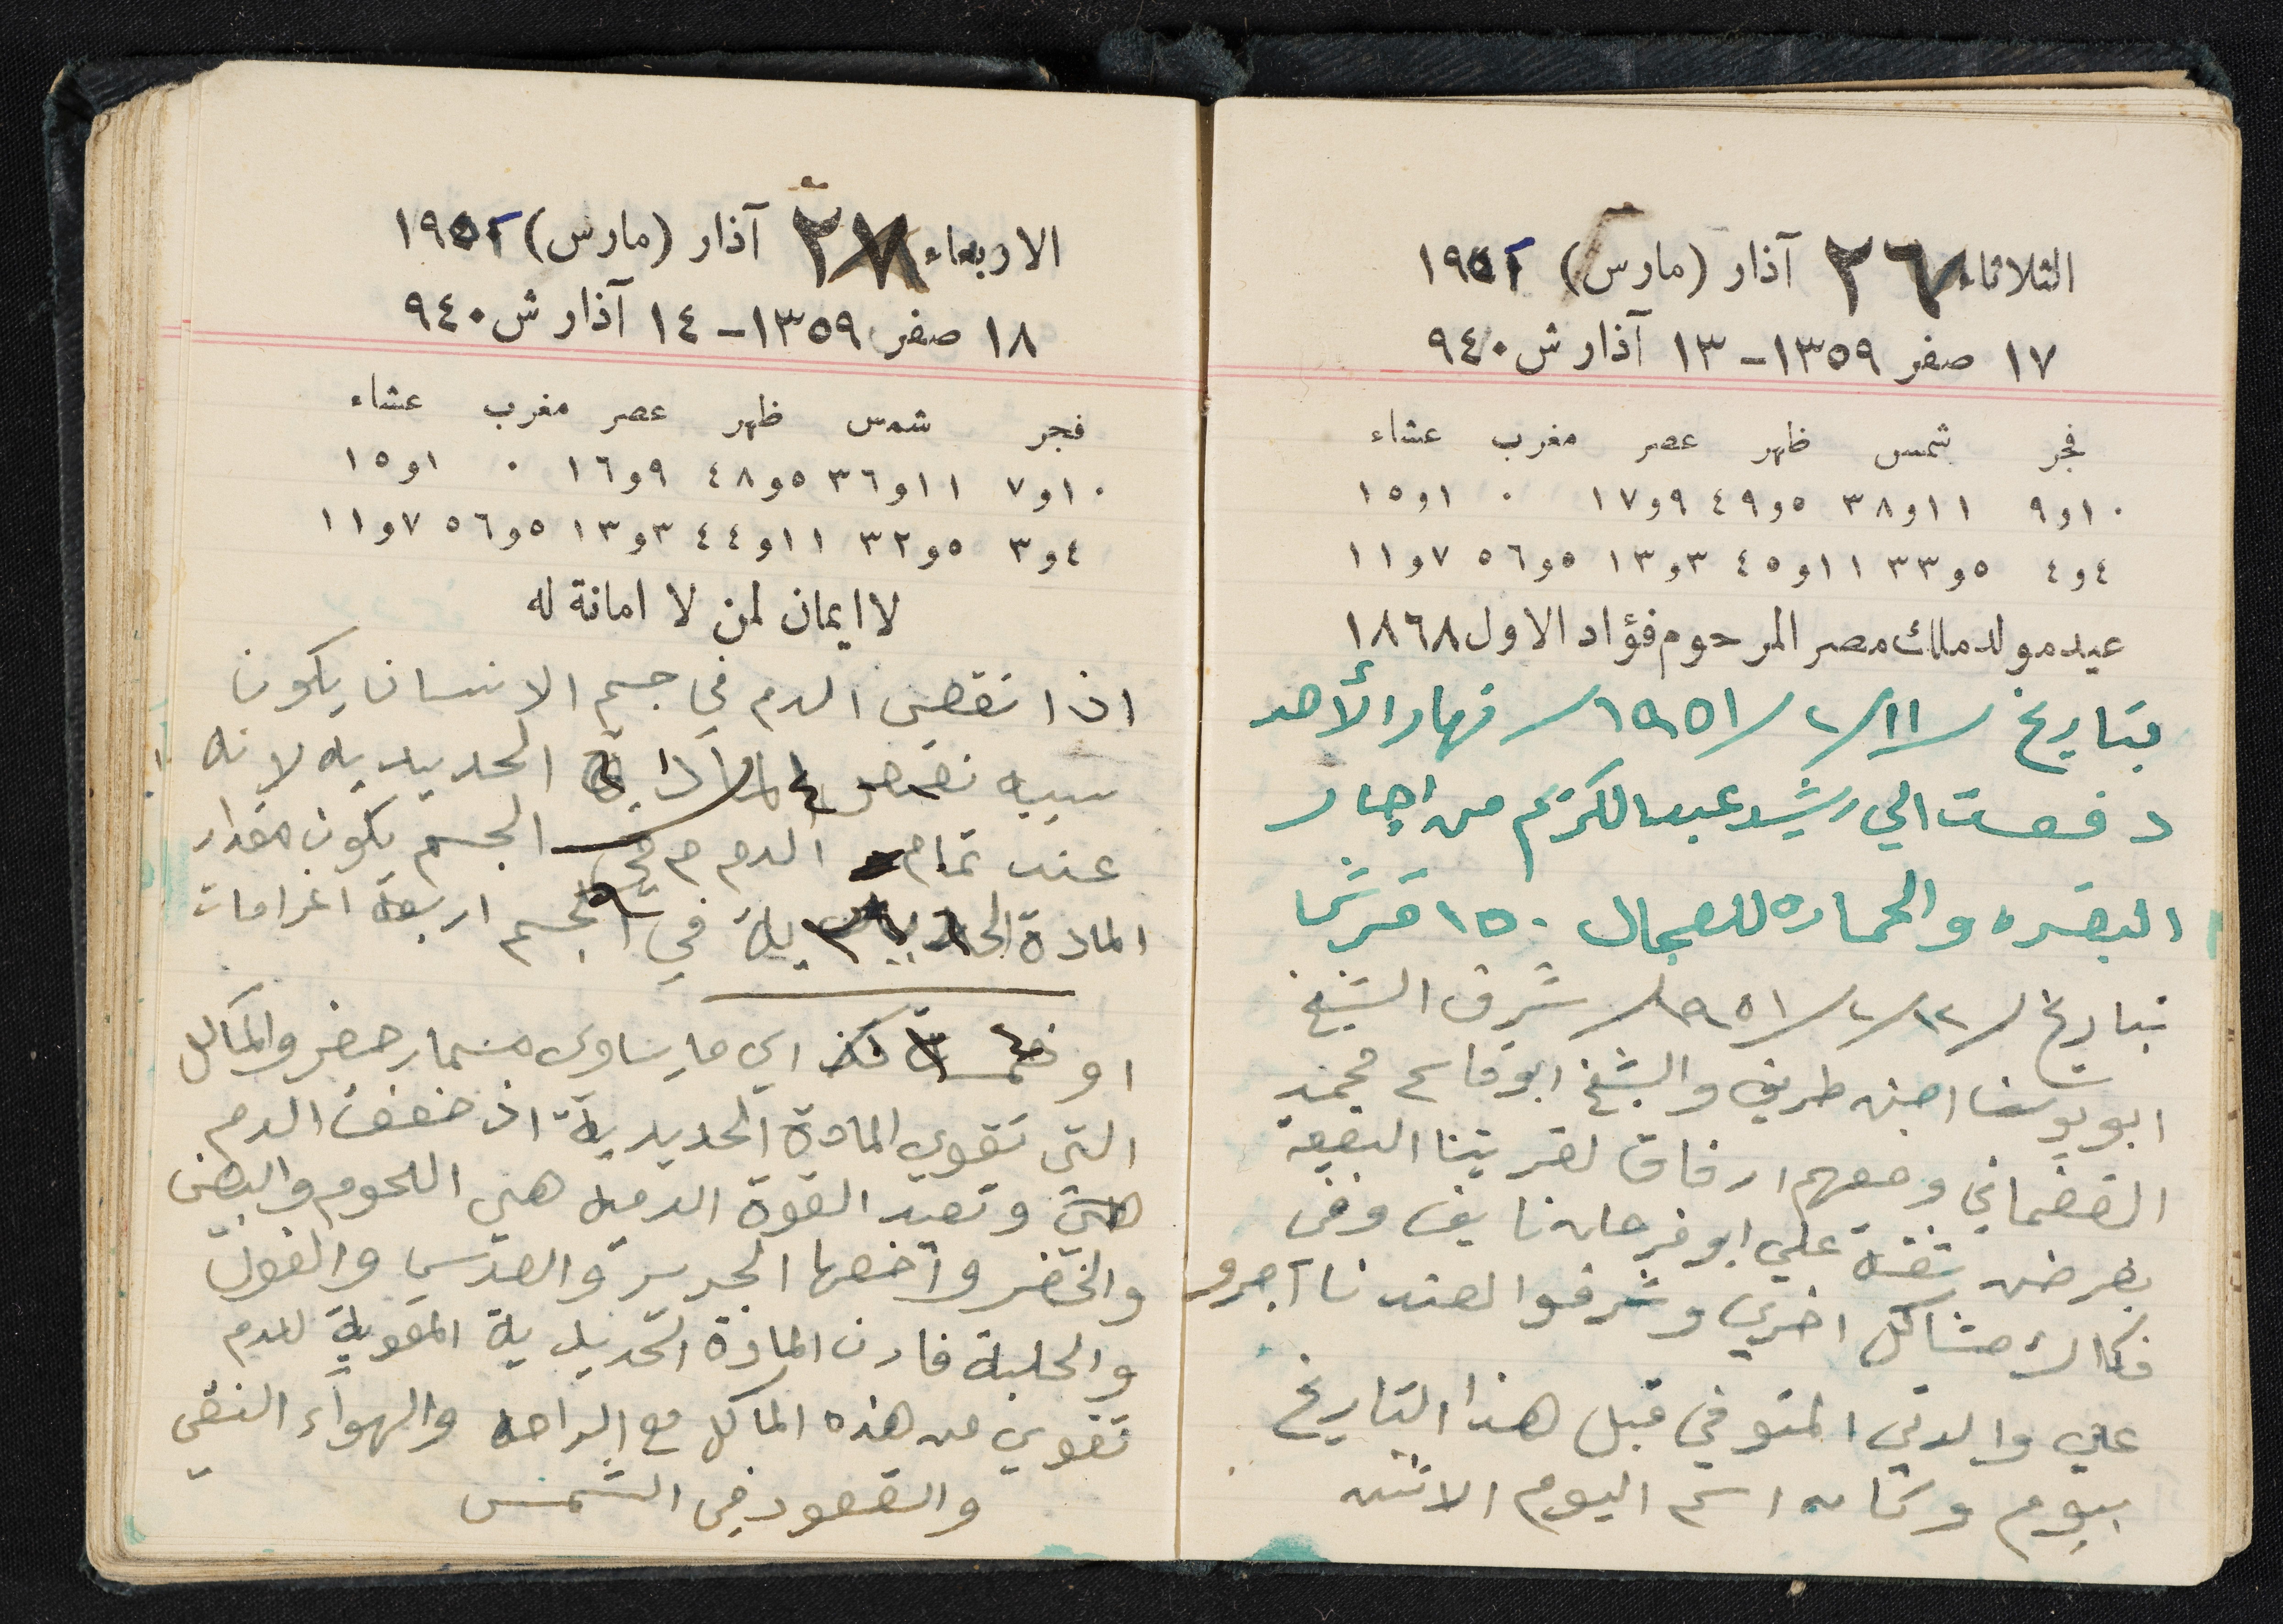 الثلاثاء ٢٦ آذار (مارس) ١٩٥٢
١٧ صفر ١٣٥٩ – ١٣ آذار ش ٩٤٠
فجر شمس ظهر عصر مغرب عشاء
١٠و٩ ١١و٣٨ ٥و٤٩ ٩و١٧ ٠ ١و١٥
٤و٤ ٥و٣٣ ١١و٤٥ ٣و١٣ ٥و٥٦ ٧و١١
عيد مولد ملك مصر المرحوم فؤاد الاول ١٨٦٨
بتاريخ / ١١ / ٢ / ١٩٥١ / نهار الأحد
دفعت الي رشيد عبدالكريم من اجار
البقره والحماره للعجال ١٥٠ قرشا
بتاريخ / ١٢ / ٢ / ١٩٥١ / شرف الشيخ
ابو يوسف امين طريف والشيخ ابو قاسم محمد
القضماني ومعهم ارفاق لقريتنا البقيعة
بغرض علي ابو فرحان نايف وفى
مشاكل اخرى وشرفوا لعندنا آجرو
على والدتي المتوفي قبل هذا التاريخ
بيوم وكان اسم اليوم الاثنين
الاربعاء ٢٧ آذار (مارس) ١٩٥٢
١٨ صفر ١٣٥٩ – ١٤ آذار ش ٩٤٠
فجر شمس ظهر عصر مغرب عشاء
١٠و٧ ١١و٣٦ ٥و٤٨ ٩و١٦ ٠ ١و١٥
٤و٣ ٥و٣٢ ١١و٤٤ ٣و١٣ ٥و٥٦ ٧و١١
لا ايمان لمن لا امانة له
اذا نقص الدم في جسم الانسان يكون
سببه نقص المادة الحديديه لانه
عند تمام الدم في الجسم يكون مقدار
المادة الحديدية في الجسم اربعة اغرامات
او خمسة اي ما يساوى مسمار حضر والماكل
التى تقوي المادة الحديدية اذ ضعف الدم
هي وتعيد القوة الدميه هي اللحوم والبيض
والخضر وأخصها الجرير والعدس والفول
والحلبة فان المادة الحديدية المقوية للدم
تقوي من هذه الماكل مع الراحه والهواء النقي
والقعود في الشمس